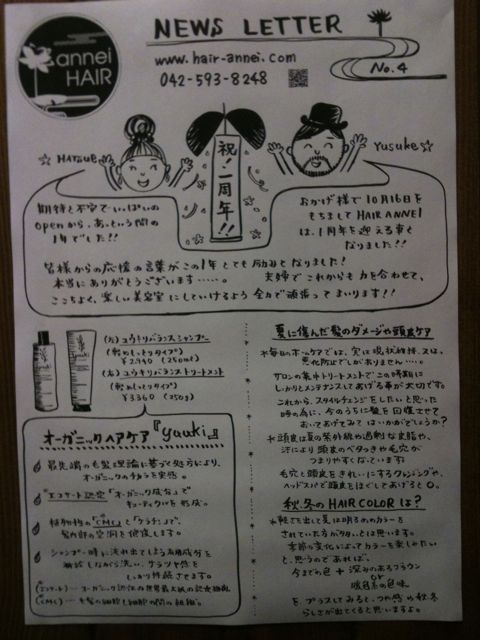 annei
HAIR
NEWS LETTER
www.hair-annei.com
042-593-8248
No.4
☆ HATSUE
Yusuke ☆
祝!一周年!!
期待と不安でいっぱいの
openから、あっという間の
1年でした!!
おかげ様で10月16日を
もちましてHAIR ANNEI
は、1周年を迎える事と
なりました!!
皆様からの応援の言葉がこの1年とても励みとなりました!
本当にありがとうございます……。夫婦でこれからも力を合わせて、
ここちよく、楽しい美容室にしていけるよう全力で頑張ってまいります!!
(左)ユウキリバランスシャンプー
(軽めしっとりタイプ)
(250ml)
(右)ユウキリバランストリートメント
(軽めしっとりタイプ)
¥3360 (250g)
オーガニックヘアケア『yuuki』
最先端の毛髪理論に基づく処方により、
オーガニックのチカラを実感。
エコサート認定「オーガニック成分」で
キューティクルを形成。
植物性の「CMC」と「ケラチン」で、
髪内部の空洞を補修します。
シャンプー時に流れ出てしまう有用成分を
補給しながら洗い、サラツヤ感を
しっかり持続させます。
(エコサート)…オーガニック認証の世界最大級の認定機関
(CMC)…毛髪の細胞と細胞の間の組織。
夏に傷んだ髪のダメージや頭皮ケア
*毎日のホームケアでは、実は現状維持、又は、
悪化防止でしかありません……。
サロンの集中トリートメントでこの時期に
しっかりとメンテナンスしてあげる事が大切です。
これから、スタイルチェンジをしたいと思った
時の為に、今のうちに髪を回復させて
おいてあげてみてはいかがでしょうか?
*頭皮は夏の紫外線や過剰な皮脂や、
汗により頭皮のベタつきや毛穴が
つまりやすくなっています。
毛穴と頭皮をきれいにするクレンジングや、
ヘッドスパで頭皮をほぐしてあげると◎。
秋.冬のHAIR COLORは?
*軽さを出して夏は明るめのカラーを
されていた方が多かったとは思います。
季節の変化によってカラーを楽しみたい
と、思うのであれば、
今までの色+深みのあるブラウン
or
暖色系の色味
を、プラスしてみると、つや感も秋冬
らしさが出てくると思いますよ。